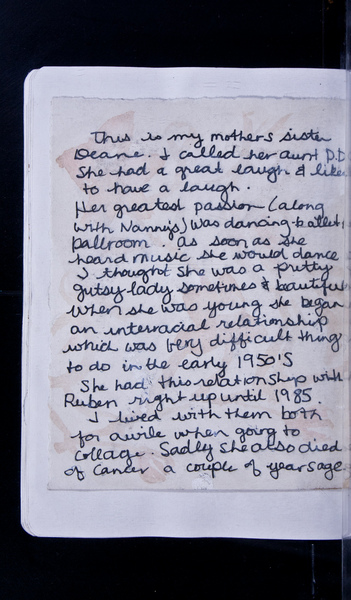 This is my mothers sister
Deane. I called her aunt D.D
She had a great laugh & like
to have a laugh.
Her greatest passion (along
with Nanny's) was dancing-ballet &
ballroom. as soon as she
heard music she would dance
I thought she was a pretty
gutsy lady sometimes & beautiful
when she was young she began
an interracial relationship
which was very difficult thing
to do in the early 1950'S
She had this relationship with
Ruben right up until 1985.
I lived with them both
for awile when going to
collage. Sadly she also died
of cancer a couple of years ago